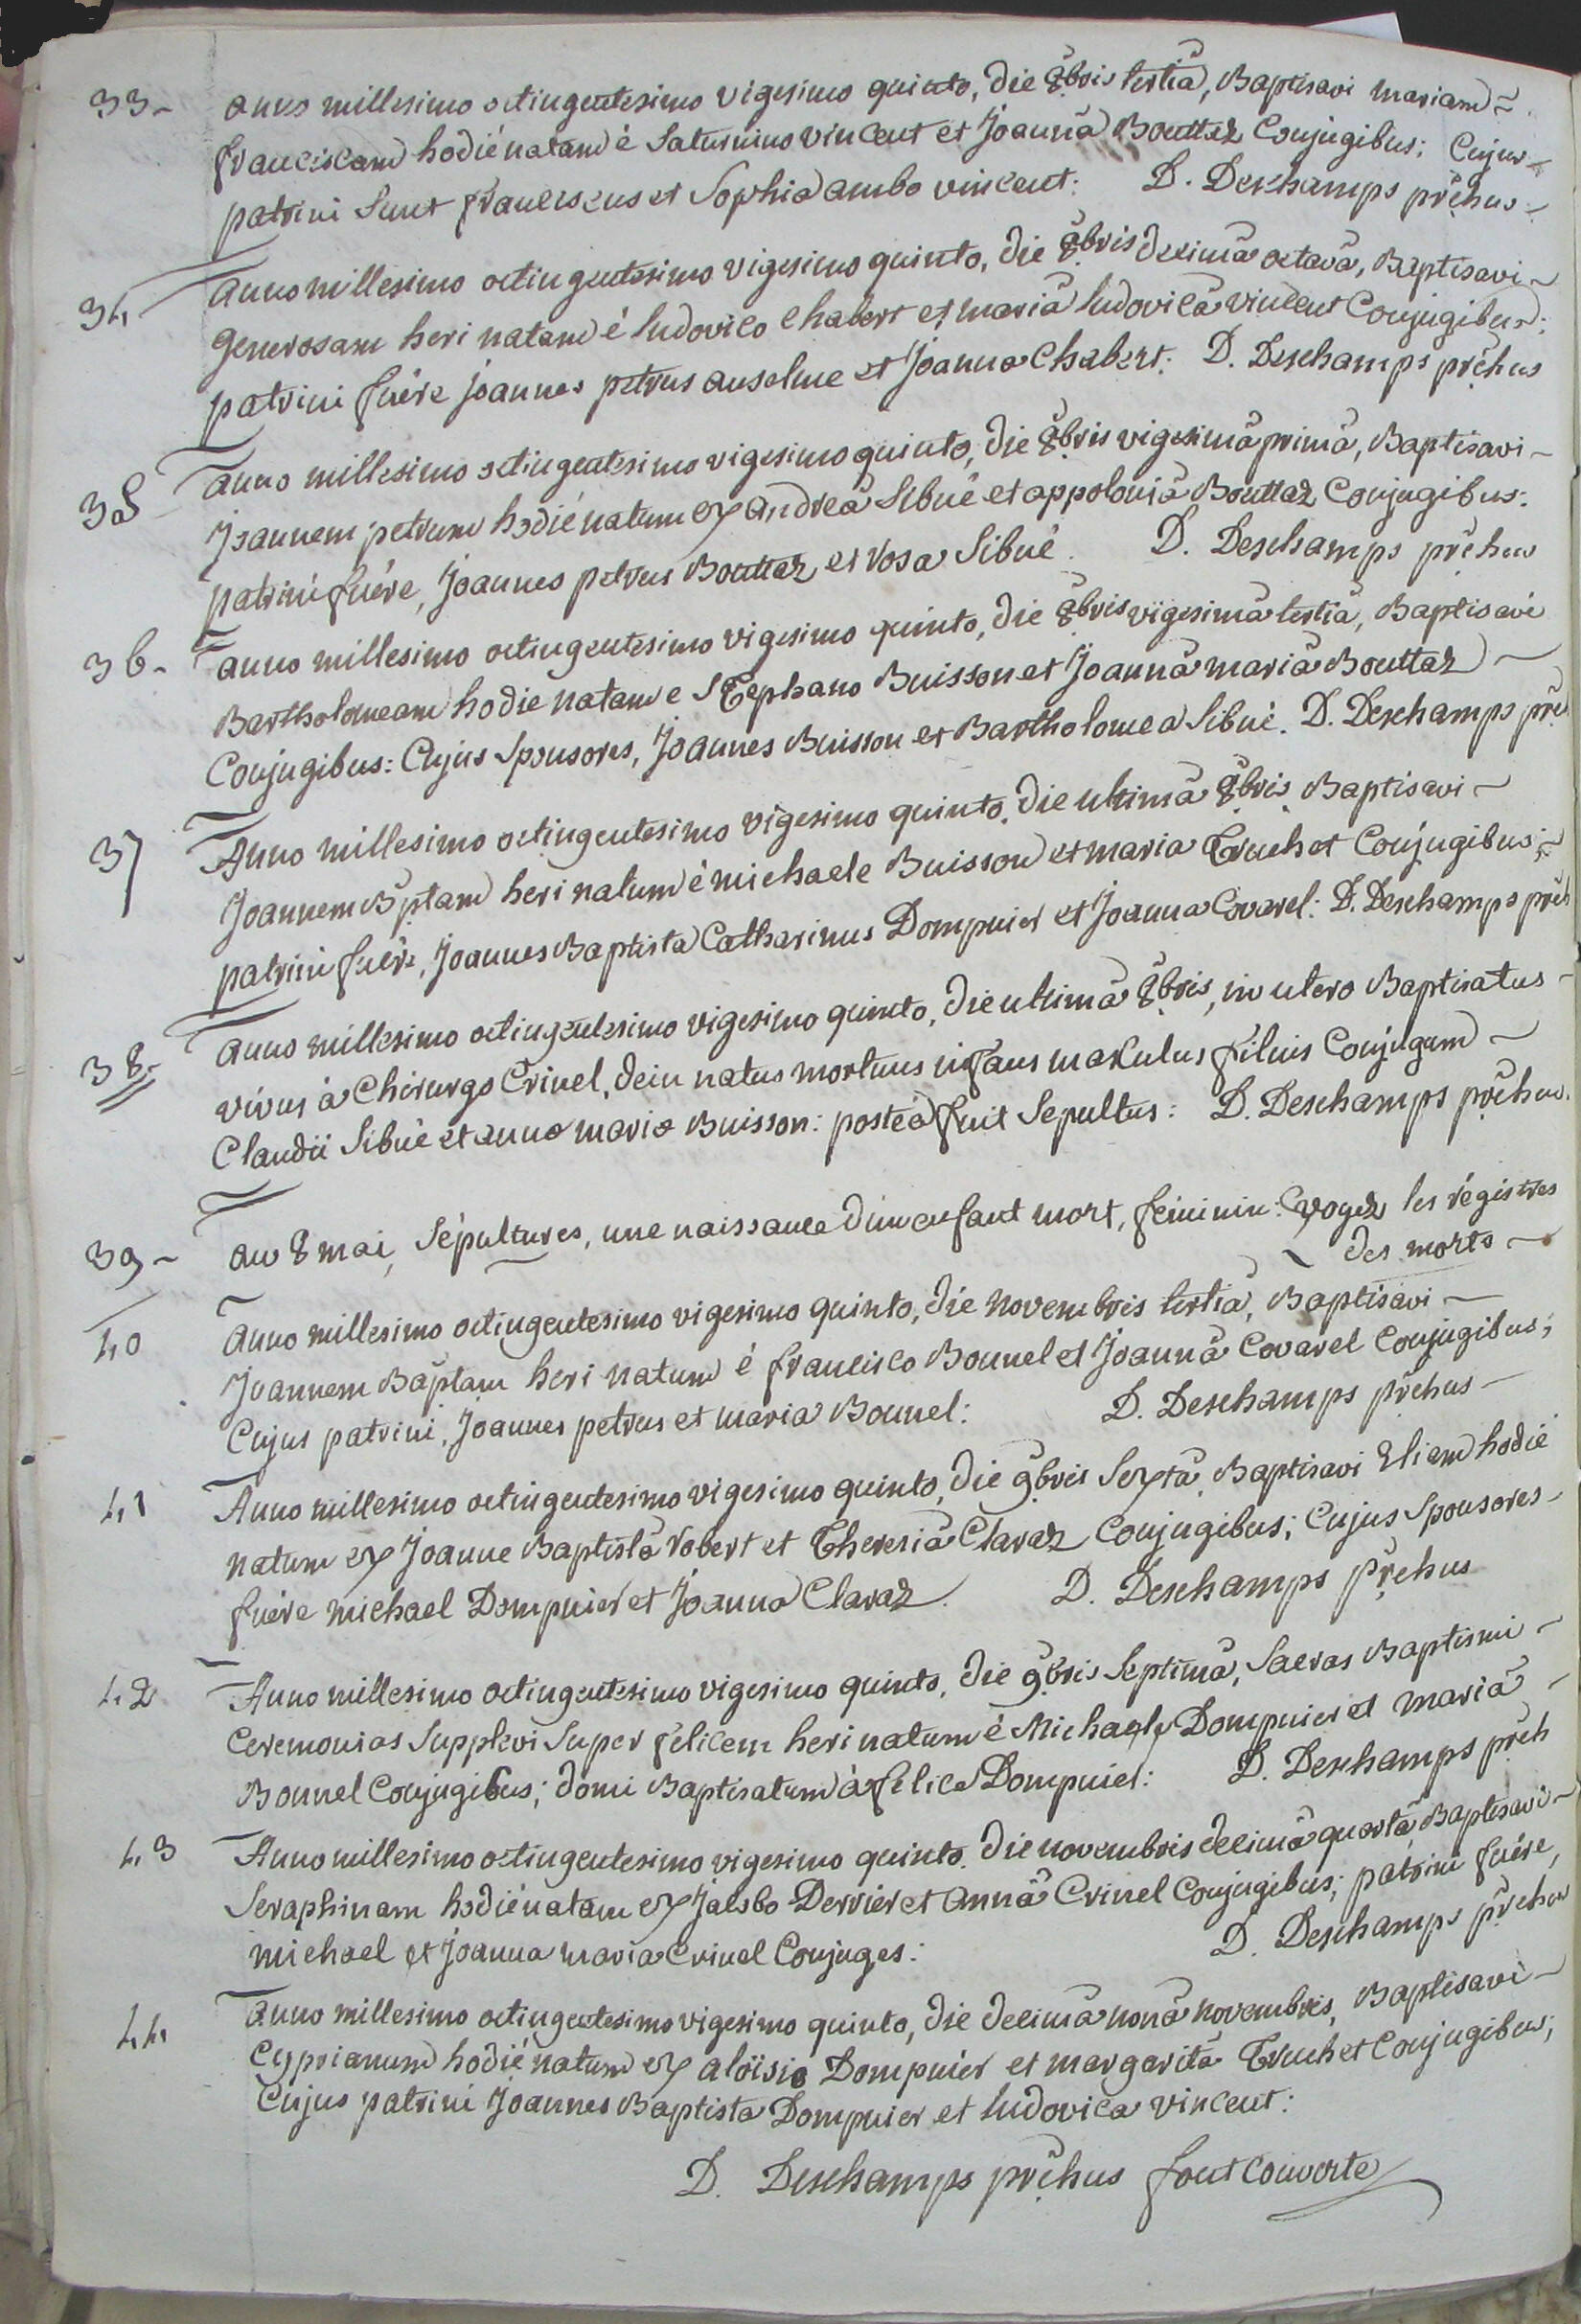 33- anno millesimo octingentesimo vigesimo quinto, die 8bris tertiâ, Baptisavi mariam
franciscam hodiè natam è Saturnino vincent et Joannâ Bouttaz Conjugibus; Cujus
patrini sunt franciscus et Sophia ambo vincent: D. Deschamps pr̃chus
34 anno millesimo octingentesimo vigesimo quinto, die 8bris decimâ octavâ, Baptisavi
generosam heri natam è ludovico chabert et mariâ ludovicâ vincent Conjugibus;
patrini fuêre joannes petrus anselme et Joanna Chabert: D. Deschamps pr̃chus
35 anno millesimo octingentesimo vigesimo quinto, die 8bris vigesimâ primâ, Baptisavi
Joannem petrum hodiè natum ex andreâ Sibuè et appoloniâ Bouttaz Conjugibus:
patrini fuêre, Joannes petrus Bouttaz et rosa Sibuè. D. Deschamps pr̃chus
36- anno millesimo octingentesimo vigesimo quinto, die 8bris vigesimâ tertiâ, Baptisavi
Bartholomeam hodie natam e Stephano Buisson et Joannâ mariâ Bouttaz
Conjugibus: Cujus Sponsores, Joannes Buisson et Bartholomea Sibuè. D. Deschamps pr̃c
37 Anno millesimo octingentesimo vigesimo quinto, die ultimâ 8bris Baptisavi
Joannem Bp̃tam heri natum è michaele Buisson et maria Truchet Conjugibus;
patrini fuêre, Joannes Baptista Catharinus Dompnier et Joanna Covarel: D. Deschamps pr̃ch
38- anno millesimo octingentesimo vigesimo quinto, die ultimâ 8bris, in utero Baptisatus
vivus à Chirurgo Crinel, dein natus mortuus infans masculus filius Conjugum
Claudii Sibuè et anna maria Buisson: posteà fuit Sepultus: D. Deschamps pr̃chus.
39- au 8 mai, Sépultures, une naissance d'un enfant mort, féminin: voyez les régistres
des morts
40 anno millesimo octingentesimo vigesimo quinto, die novembris tertiâ, Baptisavi
Joannem Bap̃tam heri natum è francisco Bonnel et Joannâ Covarel Conjugibus;
Cujus patrini, Joannes petrus et maria Bonnel: D. Deschamps pr̃chus
41 Anno millesimo octingentesimo vigesimo quinto, die 9bris Sextâ, Baptisavi Eliam hodiè
natum ex Joanne Baptistâ robert et Theresiâ Claraz Conjugibus; Cujus Sponsores
fuêre michael Dompnier et Joanna Claraz. D. Deschamps pr̃chus
42 Anno millesimo octingentesimo vigesimo quinto, die 9bris Septimâ, Sacras Baptismi
Ceremonias Supplevi Super felicem heri natum è Michaele Dompnier et mariâ
Bonnel Conjugibus; domi Baptisatum à felice Dompnier: D. Deschamps pr̃ch
43 Anno millesimo octingentesimo vigesimo quinto, die novembris decimâ quartâ, Baptisavi
Seraphinam hodiè natam ex Jacobo Derrier et annâ Crinel Conjugibus; patrini fuêre,
michael et Joanna maria Crinel Conjuges: D. Deschamps pr̃chus
44 anno millesimo octingentesimo vigesimo quinto, die decimâ nonâ novembris, Baptisavi
Cyprianum hodiè natum ex aloïsio Dompnier et margaritâ Truchet Conjugibus;
Cujus patrini Joannes Baptista Dompnier et ludovica vincent:
D. Deschamps pr̃chus fontcouverte